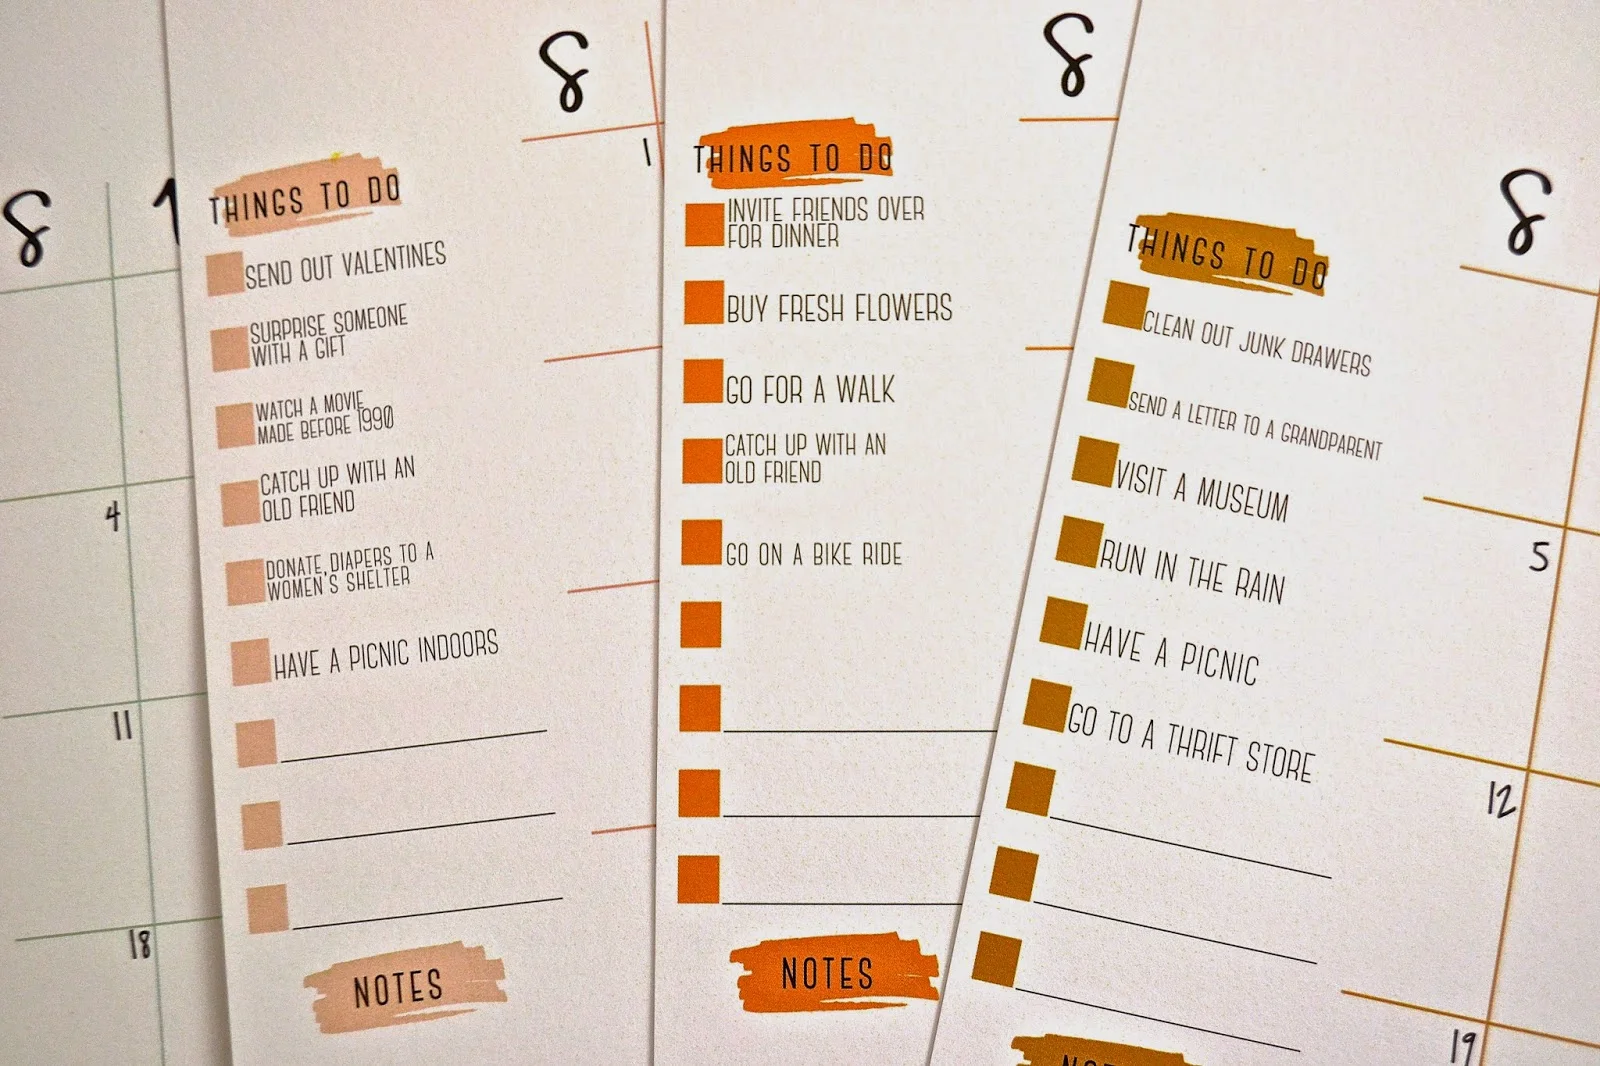 S
4
11
18
S
1
THINGS TO DO
SEND OUT VALENTINES
SURPRISE SOMEONE
WITH A GIFT
WATCH A MOVIE
MADE BEFORE 1990
CATCH UP WITH AN
OLD FRIEND
DONATE DIAPERS TO A
WOMEN'S SHELTER
HAVE A PICNIC INDOORS
NOTES
S
THINGS TO DO
INVITE FRIENDS OVER
FOR DINNER
BUY FRESH FLOWERS
GO FOR A WALK
CATCH UP WITH AN
OLD FRIEND
GO ON A BIKE RIDE
NOTES
S
THINGS TO DO
CLEAN OUT JUNK DRAWERS
SEND A LETTER TO A GRANDPARENT
VISIT A MUSEUM
RUN IN THE RAIN
HAVE A PICNIC
GO TO A THRIFT STORE
5
12
19